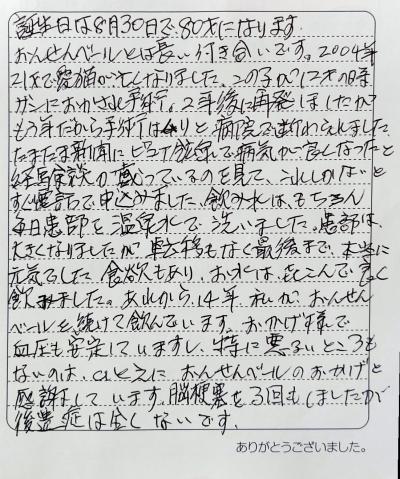 誕生日は8月30日で80才になります
おんせんベールとは長い付き合いです。2004年
21才で愛猫が亡くなりました、この子が12才の時
ガンにおかされ手術。2年後に再発しましたが
もう年だから手術はムリと病院で断わられました
たまたま新聞に 飲泉で病気が良くなったと
経験談が載っているのを見て、これしかないと
すぐ電話で申込みました、飲み水は、もちろん
毎日患部を温泉水で洗いました。患部は、
大きくなりましたが転移もなく最後まで、本当に
元気でした 食欲もあり、お水は、よろこんで良く
飲みました。あれから、14年 私が、おんせん
ベールを続けて飲んでいます。おかげ様で
血圧も安定していますし、特に悪るいところも
ないのは、ひとえに おんせんベールのおかげと
感謝しています。脳梗塞を3回もしましたが
後豊症は全くないです。
ありがとうございました。